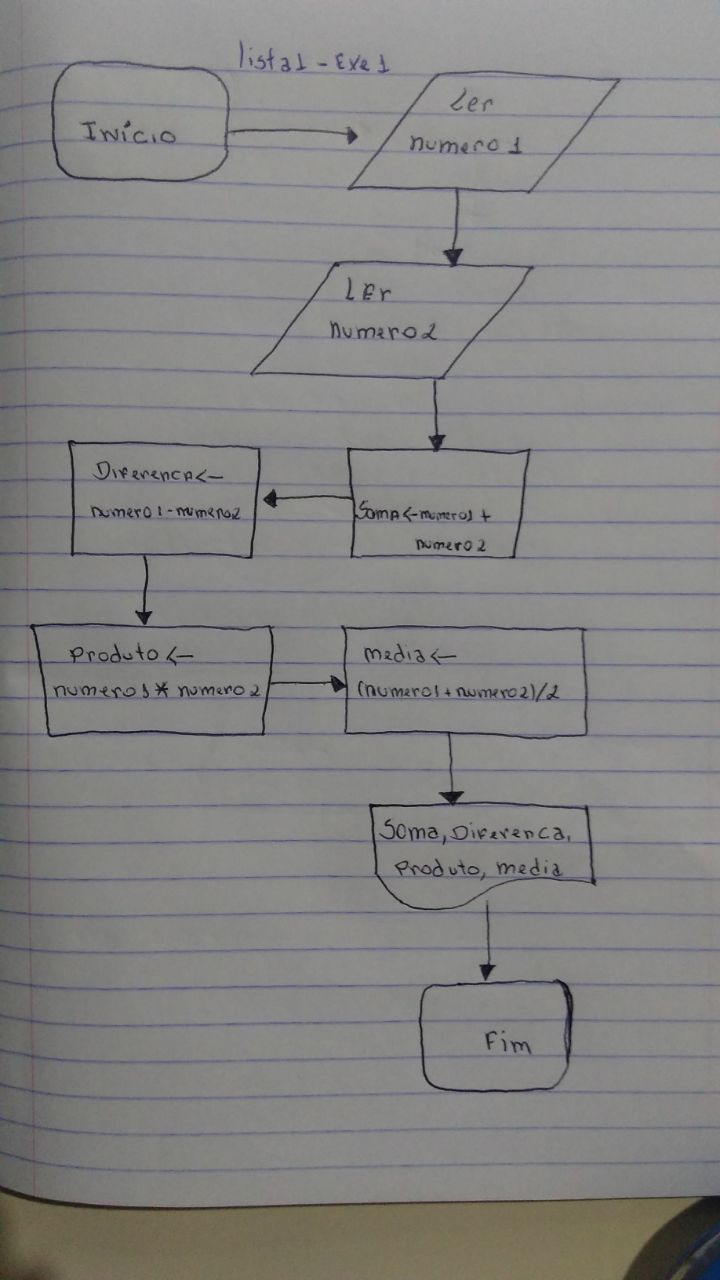 lista1 - Exe1
Início
Ler
numero1
Ler
numero2
Soma<-numero1 +
numero2
Diferenca<-
numero1-numero2
Produto<-
numero1*numero2
media<-
(numero1+numero2)/2
Soma, Diferenca,
Produto, media
Fim